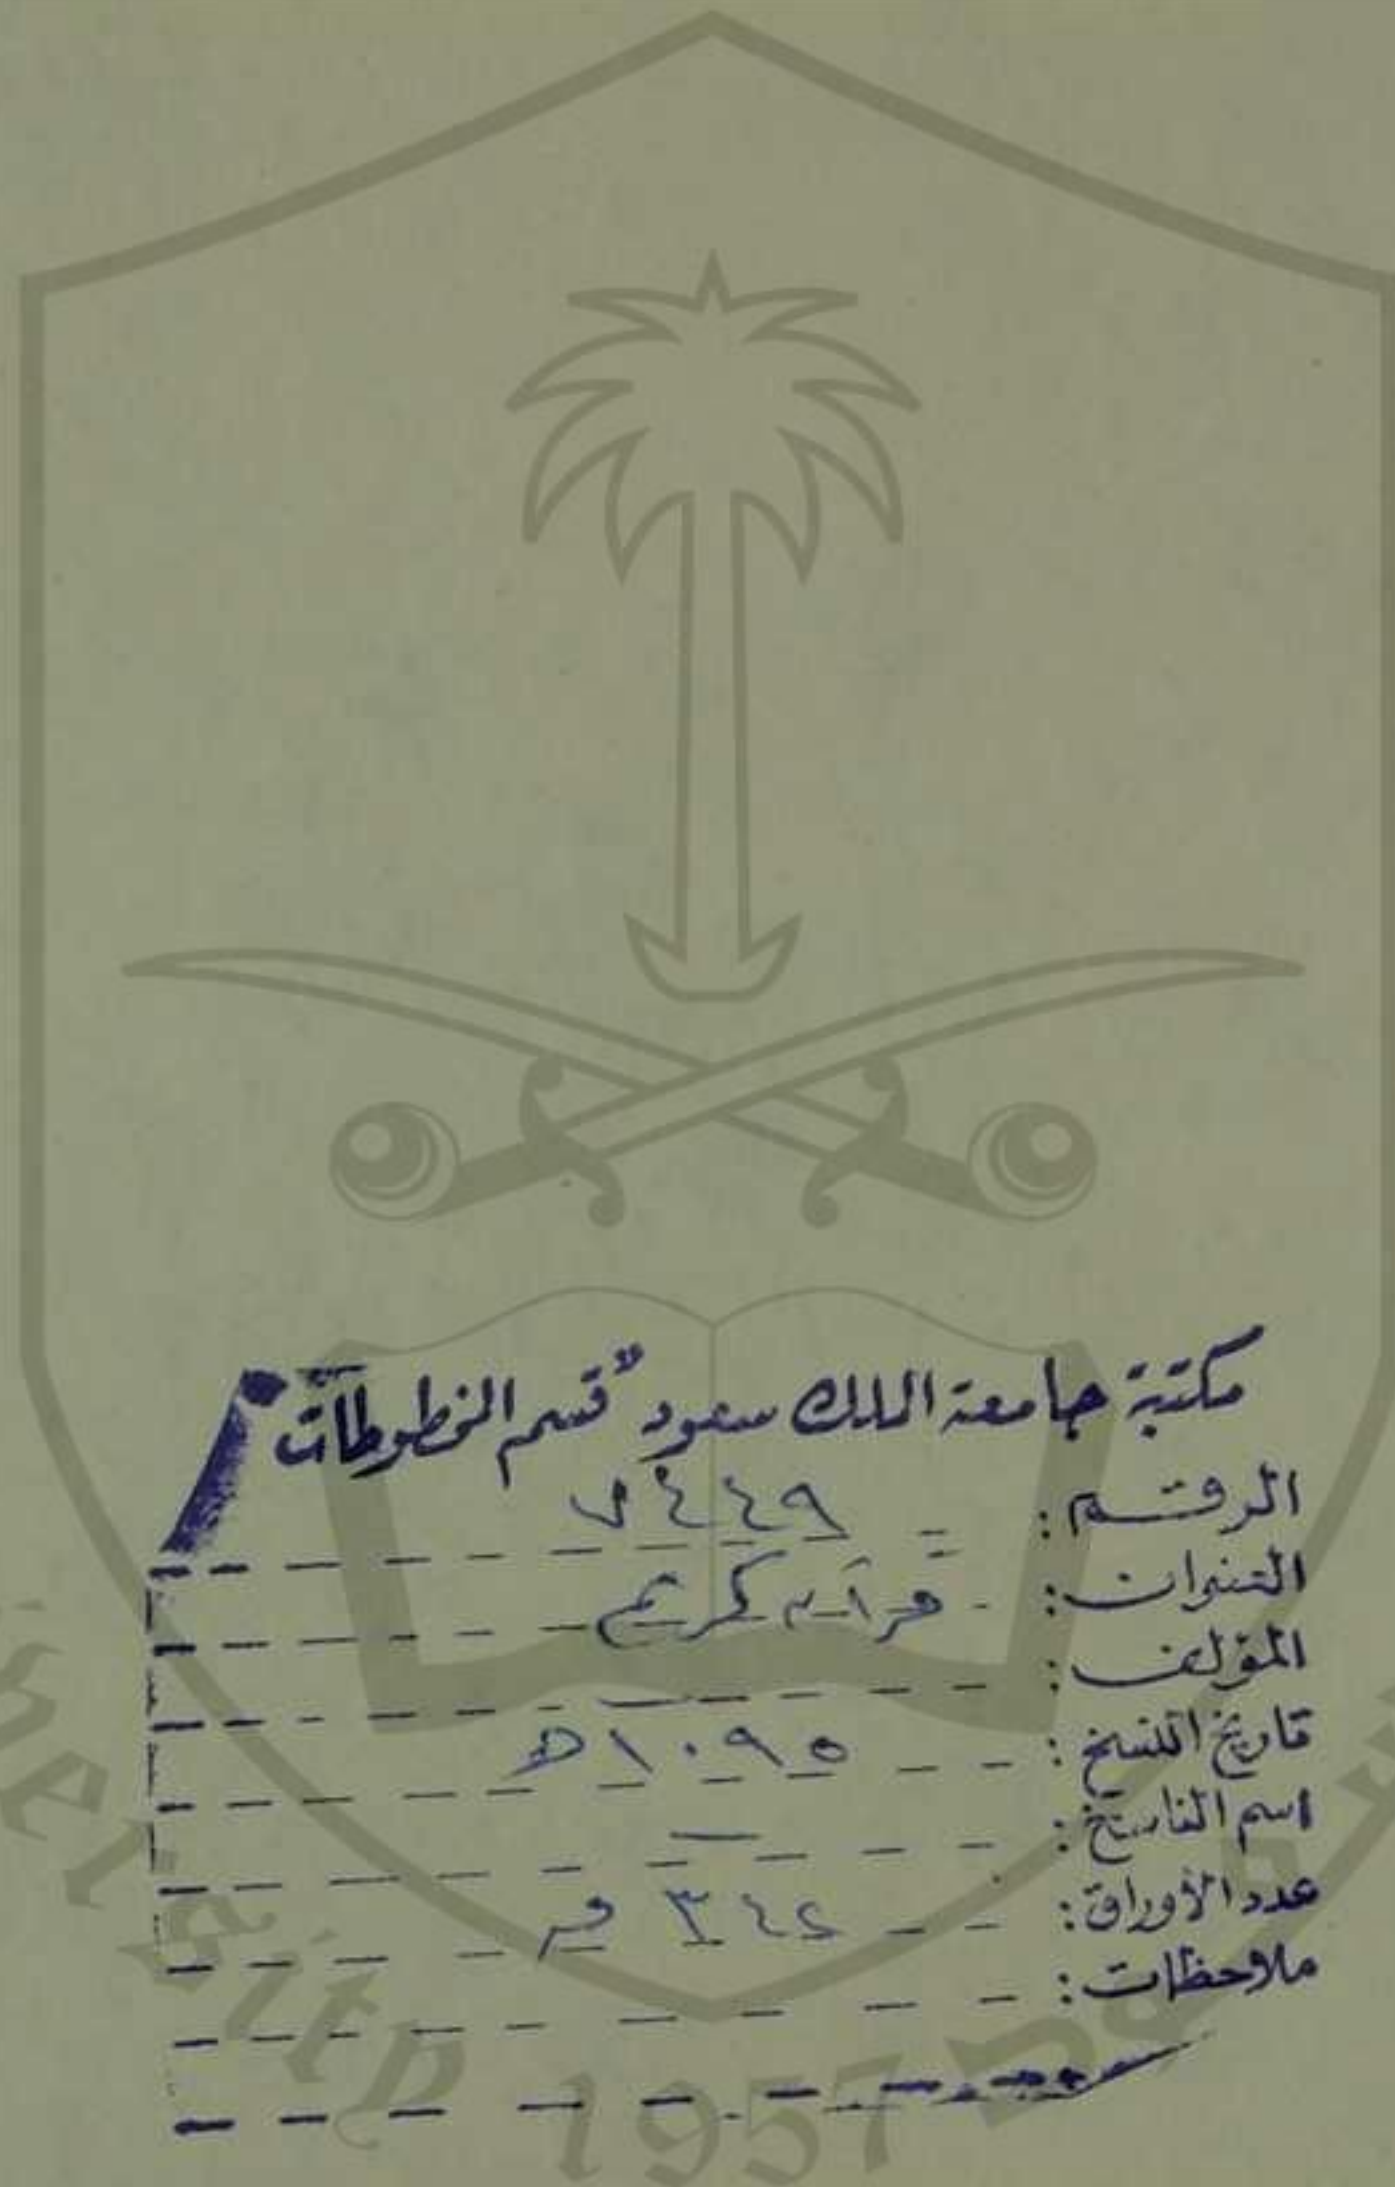 مكتبة جامعة الملك سعود "قسم المخطوطات"
الرقم: ٧٤٤٩
العنوان: قرآن كريم
المؤلف: —
تاريخ النسخ: ١٠٩٥ هـ
اسم الناسخ: —
عدد الأوراق: ٣٤٢ ق
ملاحظات:
1957